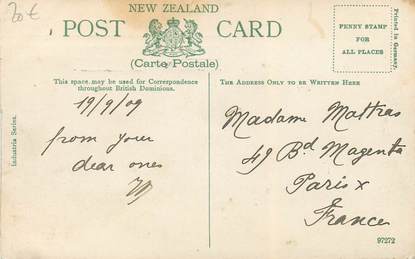 20 €
NEW ZEALAND
POST CARD
(Carte Postale)
PENNY STAMP
FOR
ALL PLACES
Printed in Germany.
This space may be used for Correspondence
throughout British Dominions.
THE ADDRESS ONLY TO BE WRITTEN HERE
Industria Series.
19/9/09
from your
dear ones
Madame Mattras
49 Bd Magenta
Paris x
France
97272